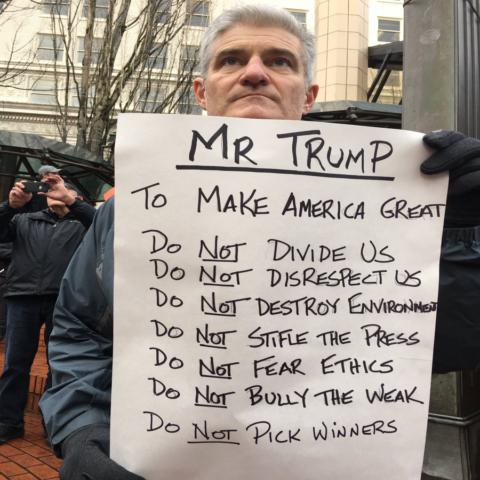 MR TRUMP
To MAKE AMERICA GREAT
Do NOT DIVIDE US
Do NOT DISRESPECT US
Do NOT DESTROY ENVIRONMENT
Do NOT STIFLE THE PRESS
Do NOT FEAR ETHICS
Do NOT BULLY THE WEAK
Do NOT PICK WINNERS